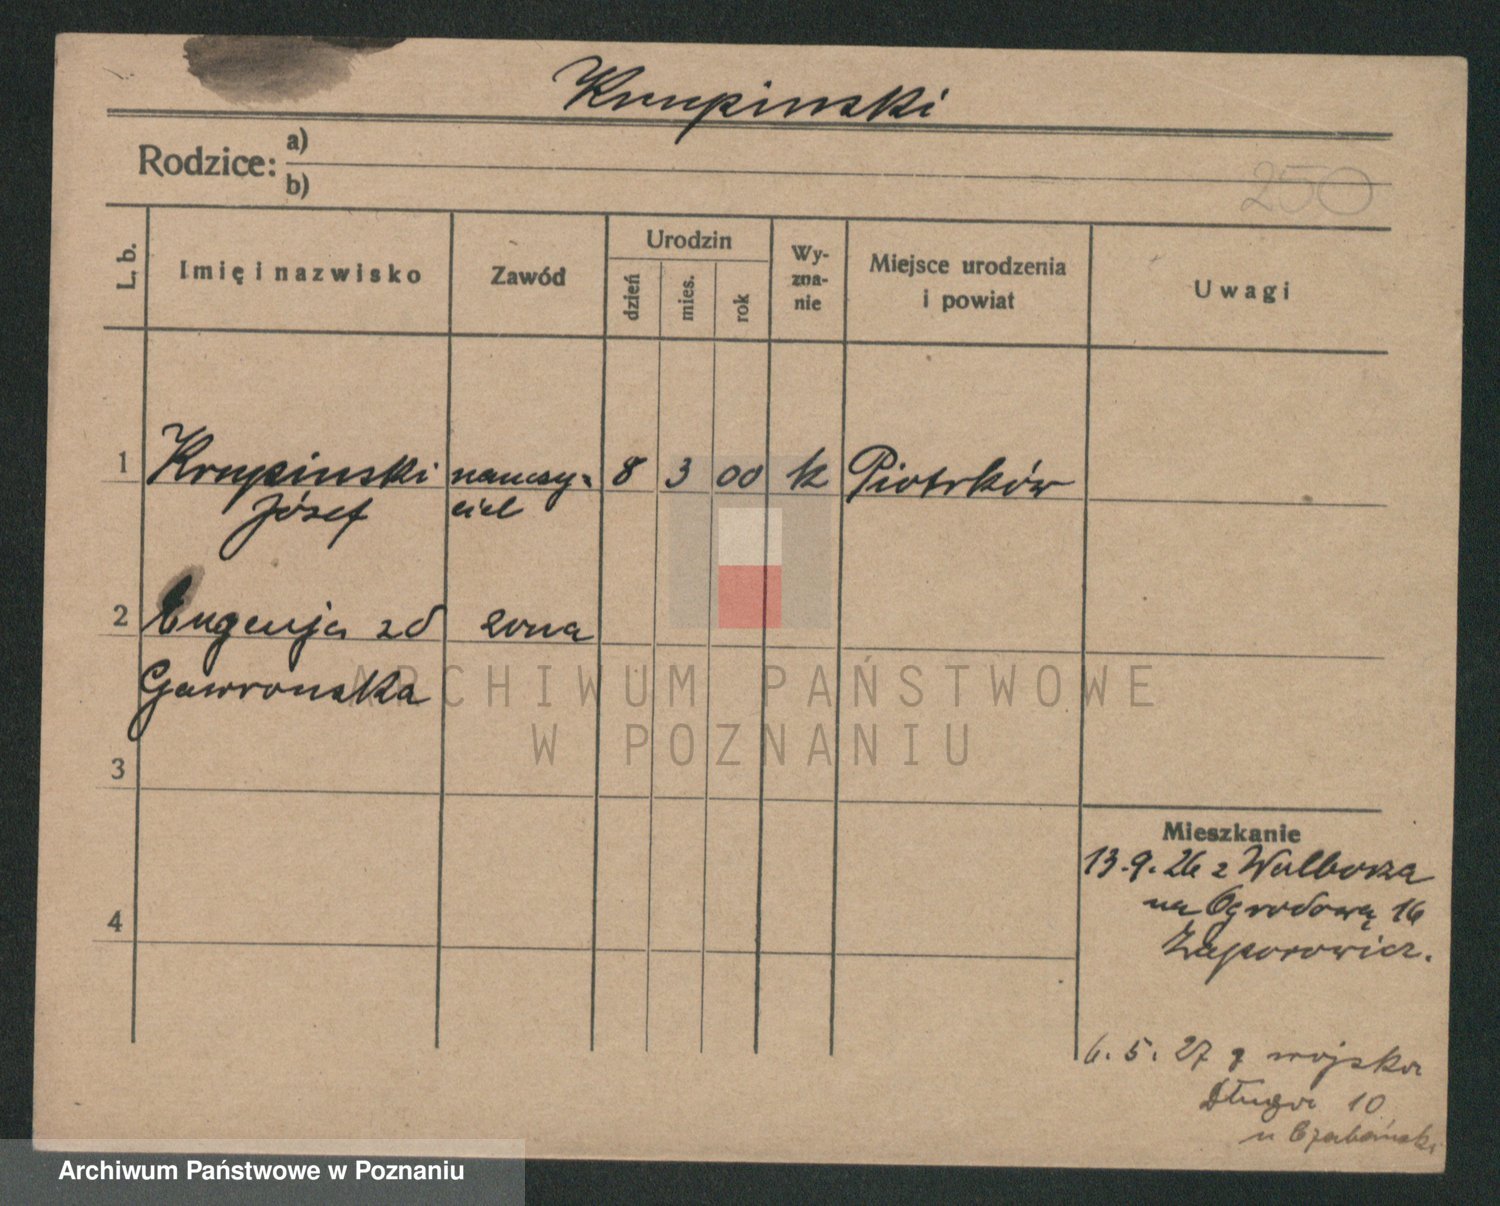 Krupinski
Rodzice: a)
b)
250
L. b.
Imię i nazwisko
Zawód
Urodzin
dzień
mies.
rok
Wy-
zna-
nie
Miejsce urodzenia
i powiat
Uwagi
1 Krupinski nauczy- 8 3 00 k Piotrków
Józef ciel
2 Eugenja zd zona
Gawronska
3
4
ARCHIWUM PAŃSTWOWE
W POZNANIU
Mieszkanie
13.9.26 z Wolborza
na Ogrodową 16
6.5.27 z wojska
Długa 10
u
Archiwum Państwowe w Poznaniu